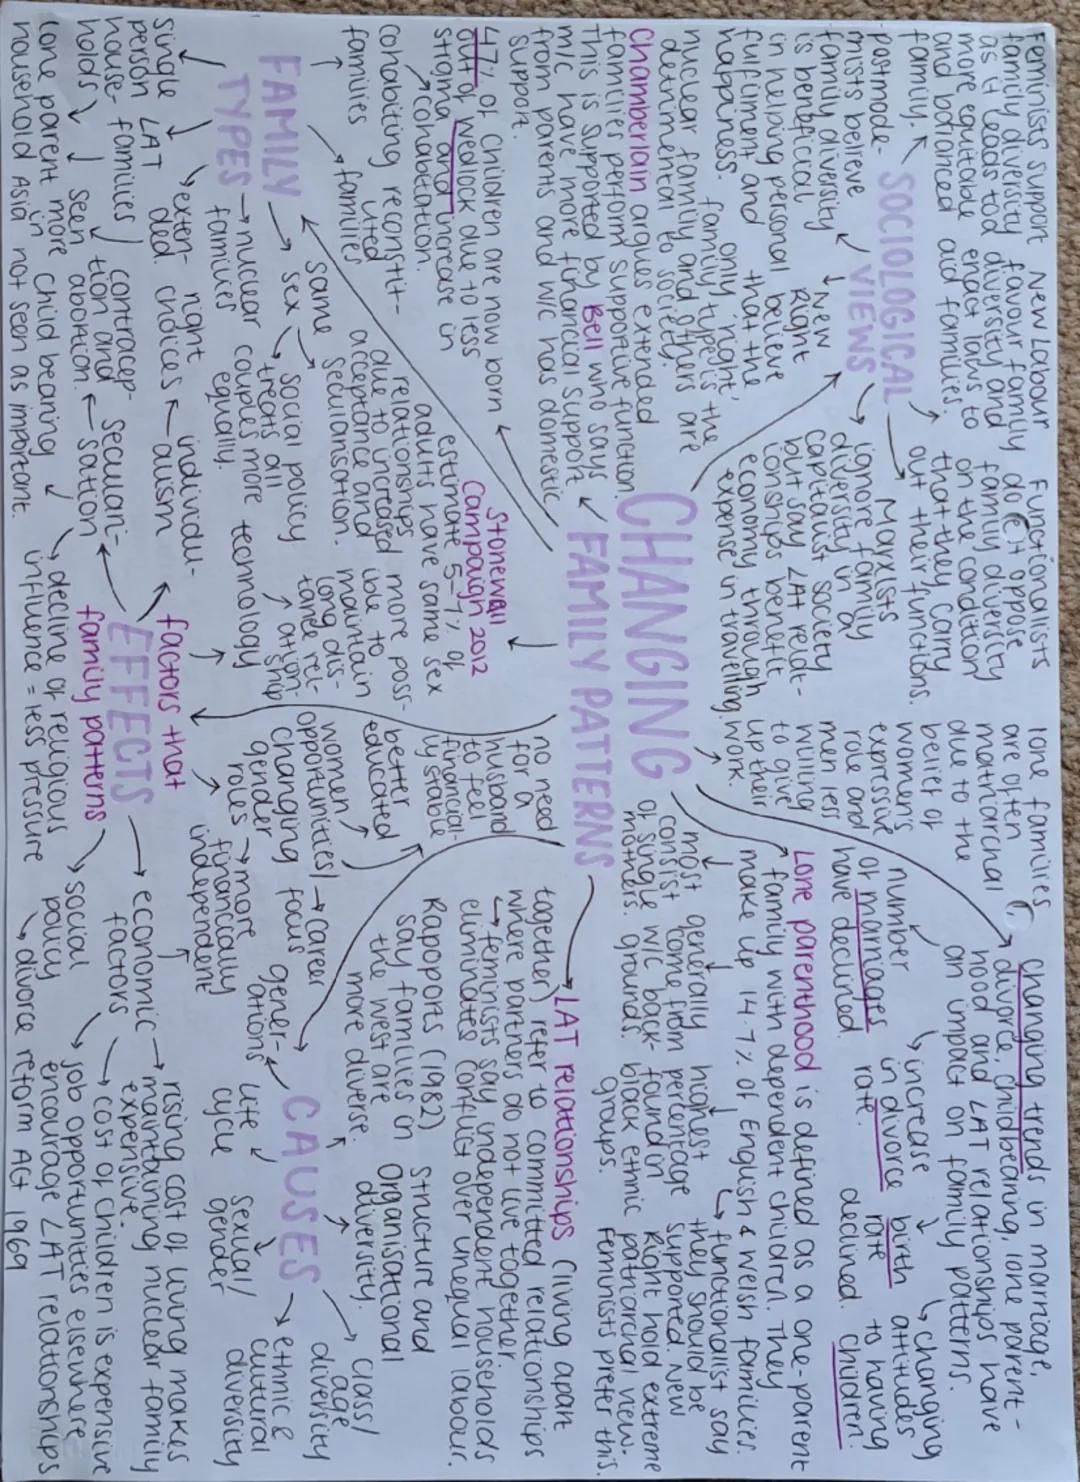 Feminists support
family diversity
as it leads to a
more equitable
and balanced
family.
New Labour
favour family
diversity and
enact laws to
aid families.
Functionalists
do not oppose
family diversity
on the condition
that they carry
out their functions.
SOCIOLOGICAL
VIEWS
postmode-
mists believe
family diversity
is beneficial
in helping personal
fulfilment and
happiness.
New
Right
believe
that the
only 'right'
family type is the
nuclear family and others are
detrimental to society.
Marxists
ignore family
diversity in
capitalist society
but say LAT relat-
ionships benefit
economy through
expense in travelling.
Chamberlain argues extended
families perform supportive function.
This is supported by Bell who says
m/c have more financial support
from parents and w/c has domestic
support.
CHANGING
FAMILY PATTERNS
47% of children are now born
out of wedlock due to less
stigma and increase in
cohabitation.
Stonewall
Campaign 2012
estimate 5-7% of
adults have same sex
relationships
due to increased
acceptance and
secularisation.
FAMILY
TYPES
cohabiting
families
reconstit-
uted
families
same
sex
nuclear
families
extén-
ded
LAT
families
single
person
house-
holds
lone families
are often
matriarchal
due to the
belief of
women's
expressive
role and
men less
willing
to give
up their
work.
changing trends in marriage,
divorce, childbearing, lone parent-
hood and LAT relationships have
an impact on family patterns.
number
of marriages
have declined.
increase
in divorce
rate.
birth
rate
declined.
changing
attitudes
to having
children.
Lone parenthood is defined as a one-parent
family with dependent children. They
make up 14.7% of English & Welsh families.
most
consist
of single
mothers.
generally
come from
w/c back-
grounds.
highest
percentage
found in
black ethnic
groups.
functionalist say
they should be
supported. New
Right hold extreme
patriarchal view.
Feminists prefer this.
LAT relationships (living apart
together) refer to committed relationships
where partners do not live together.
feminists say independent households
eliminates conflict over unequal labour.
Rapoports (1982)
say families in
the west are
more diverse.
CAUSES
structure and
Organisational
diversity.
class/
age
diversity
ethnic &
cultural
diversity
sexual/
gender
life
cycle
gener-
ations
factors that
EFFECTS
family patterns
no need
for a
husband
to feel
financial-
ly stable
better
educated
women
opportunities/
career
focus
changing
gender
roles
more
financially
independent
technology
more poss-
ible to
maintain
long dis-
tance rel-
ation-
ship
social policy
treats all
couples more
equally.
individu-
alism
right
choices
secular-
isation
contracep-
tion and
abortion.
seen
more
in
Asia
one parent
household
child bearing
not seen as important.
decline of religious
influence = less pressure
social
policy
divorce reform Act 1969
economic
factors
rising cost of living makes
maintaining nuclear family
expensive.
cost of children is expensive
job opportunities elsewhere
encourage LAT relationships